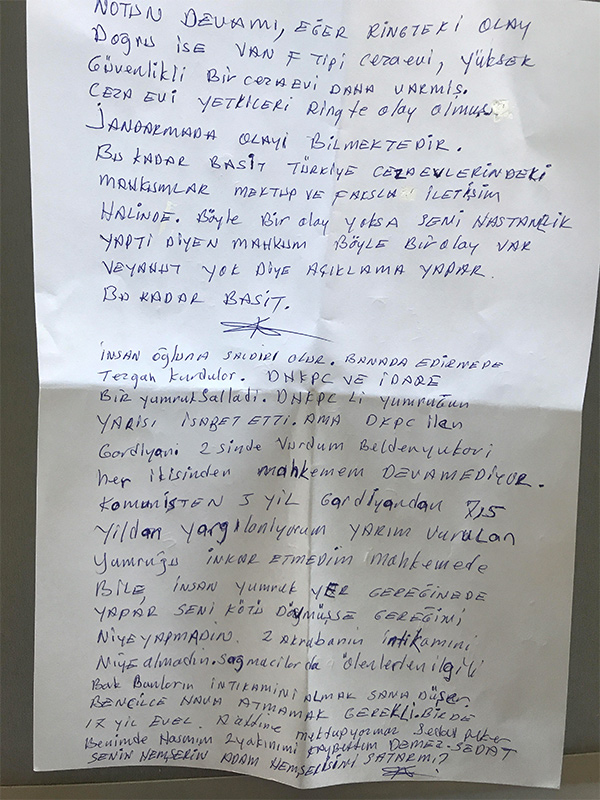 NOTUN DEVAMI, EĞER RİNGTEKİ OLAY
DOĞRU İSE VAN F Tipi cezaevi, yüksek
Güvenlikli Bir cezaevi DAHA VARMIŞ.
CEZA EVİ YETKİLERİ Ringte olay olmuş.
JANDARMADA OLAYI BİLMEKTEDİR.
BU KADAR BASİT TÜRKİYE CEZAEVLERİNDEKİ
MAHKUMLAR MEKTUP VE FAKSLA İLETİŞİM
HALİNDE. Böyle Bir olay yoksa SENİ HASTANELİK
YAPTI DİYEN MAHKUM BÖYLE BİR OLAY VAR
VEYAHUT YOK DİYE AÇIKLAMA YAPAR.
BU KADAR BASİT.
İNSAN OĞLUNA SALDIRI OLUR. BANADA EDİRNEDE
Tezgah kurdular. DHKPC VE İDARE
BİR yumruk salladı. DHKPC Lİ yumruğun
YARISI İSABET ETTİ. AMA DKPC ilen
Gardiyanı 2 sinde Vurdum Belden yukarı
her ikisinden mahkemem DEVAMEDİYOR.
KOMUNİSTEN 5 yıl Gardiyandan 7,5
yıldan yargılanıyorum YARIM vurulan
yumruğu İNKAR ETMEDİM mahkemede
BİLE İNSAN yumruk YER GEREĞİNEDE
YAPAR SENİ KÖTÜ DÖVMÜŞSE GEREĞİNİ
NİYE YAPMADIN. 2 AKrabanın intikamını
NİYE almadın. Sağmacılarda ölenlerden ilgili
Bak Bunların İNTİKAMINI ALMAK SANA DÜŞER.
BENCİLCE HAVA ATMAMAK GEREKLİ. BİRDE
17 yıl EVEL. mektup yazmaz
Benimde Hasmım 2 yakınımı kaybettim DEMEZ. SEDAT
SENİN HEMŞERİN ADAM HEMŞERİSİNİ SATARMI?